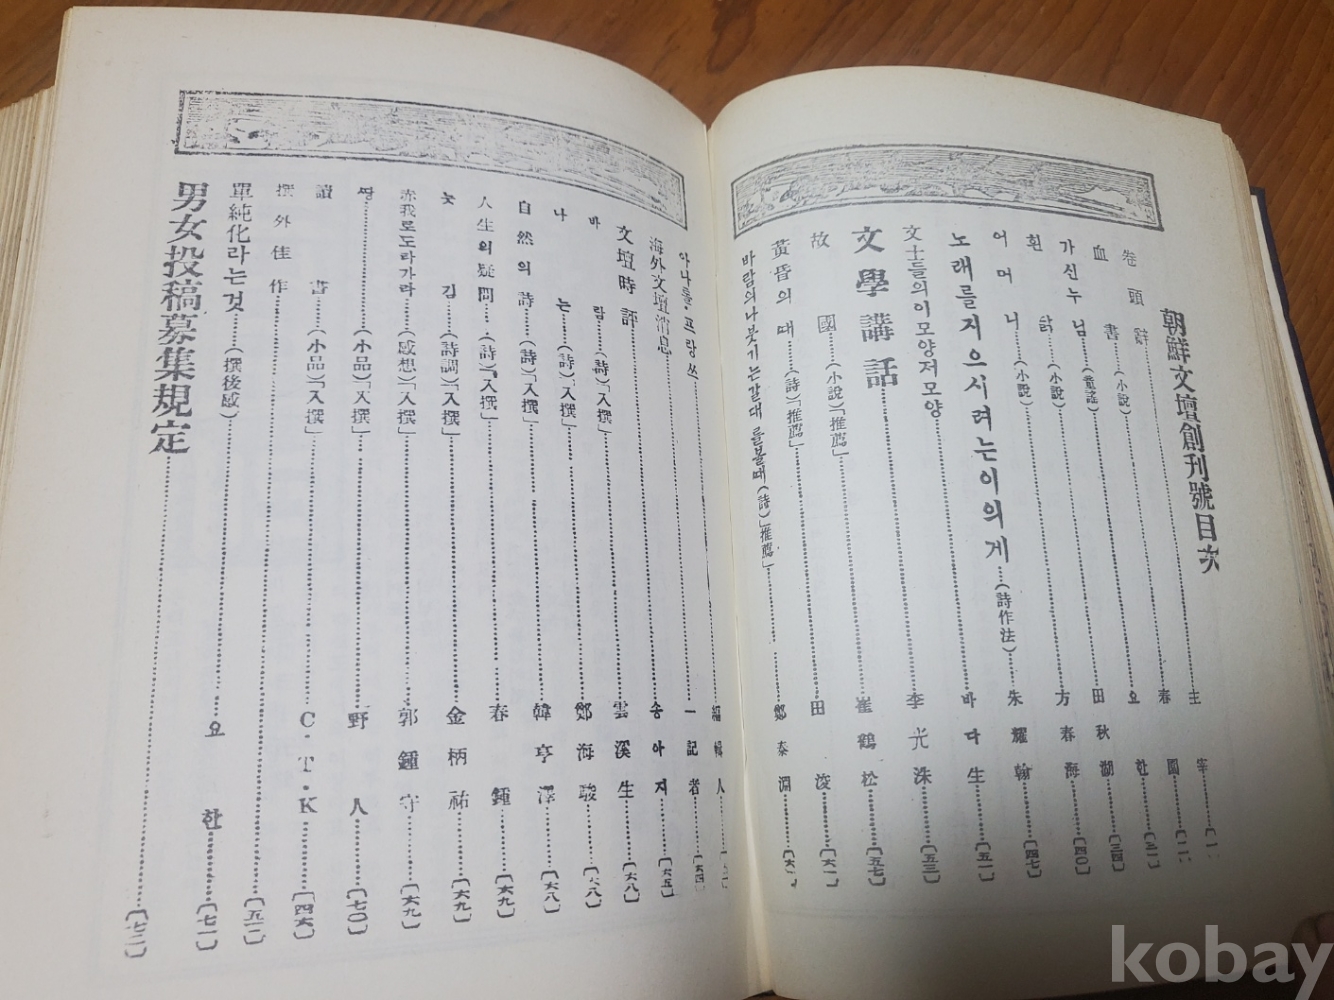 朝鮮文壇創刊號目次
卷頭辭 主宰
血書(小說) 春園
가신누님(童謠) 요한
흰닭(小說) 田秋湖 (三四)
어머니(小說) 方春海 (四〇)
노래를지으시려는이의게(詩作法) 朱耀翰 (四七)
文士들의이모양저모양 바다生 (五一)
文學講話 李光洙 (五三)
故國(小說)「推薦」 崔鶴松 (五七)
黃昏의때(詩)「推薦」 田浚 (六一)
바람의나붓기는갈대를볼때(詩)「推薦」 鄭泰淵
아나톨·프랑쓰 編輯人
海外文壇消息 一記者 (六四)
文壇時評 송아지 (六五)
바람(詩)「入撰」 雲溪生 (六八)
나는(詩)「入撰」 鄭海駿 (六八)
自然의詩(詩)「入撰」 韓亨澤 (六八)
人生의疑問(詩)「入撰」 春鍾 (六九)
눗김(詩調)「入撰」 金柄祐 (六九)
赤我로도라가라(感想)「入撰」 郭鍾守 (六九)
땅(小品)「入撰」 野人 (七〇)
讀書(小品)「入撰」 C·T·K (四六)
撰外佳作 (五二)
單純化라는것(撰後感) 요한 (七一)
男女投稿募集規定 (七二)
kobay